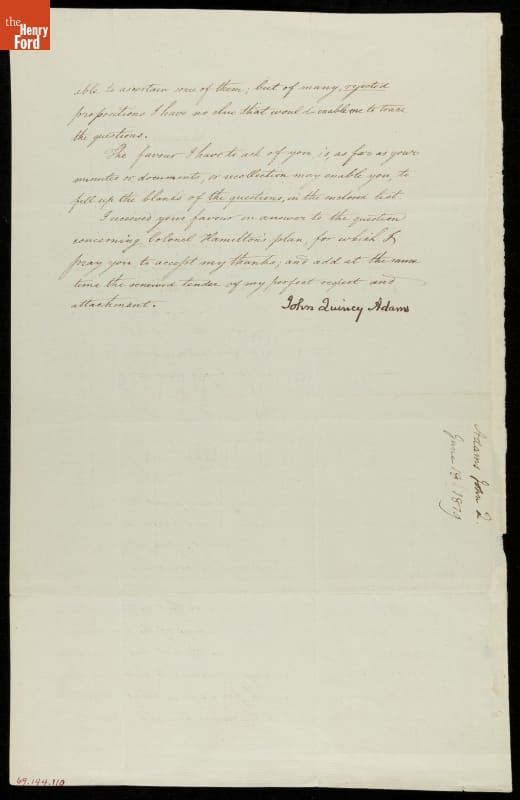 the
Henry
Ford
able to ascertain some of them; but of many, rejected
propositions I have no clue that would enable me to trace
the questions.
The favour I have to ask of you is, as far as your
minutes or documents, or recollection may enable you, to
fill up the blanks of the questions, in the inclosed list.
I received your favour in answer to the question
concerning Colonel Hamilton's plan, for which I
pray you to accept my thanks; and add at the same
time the renewed tender of my perfect respect and
attachment.
John Quincy Adams
Adams John Q.
June 18. 1819
69.144.110